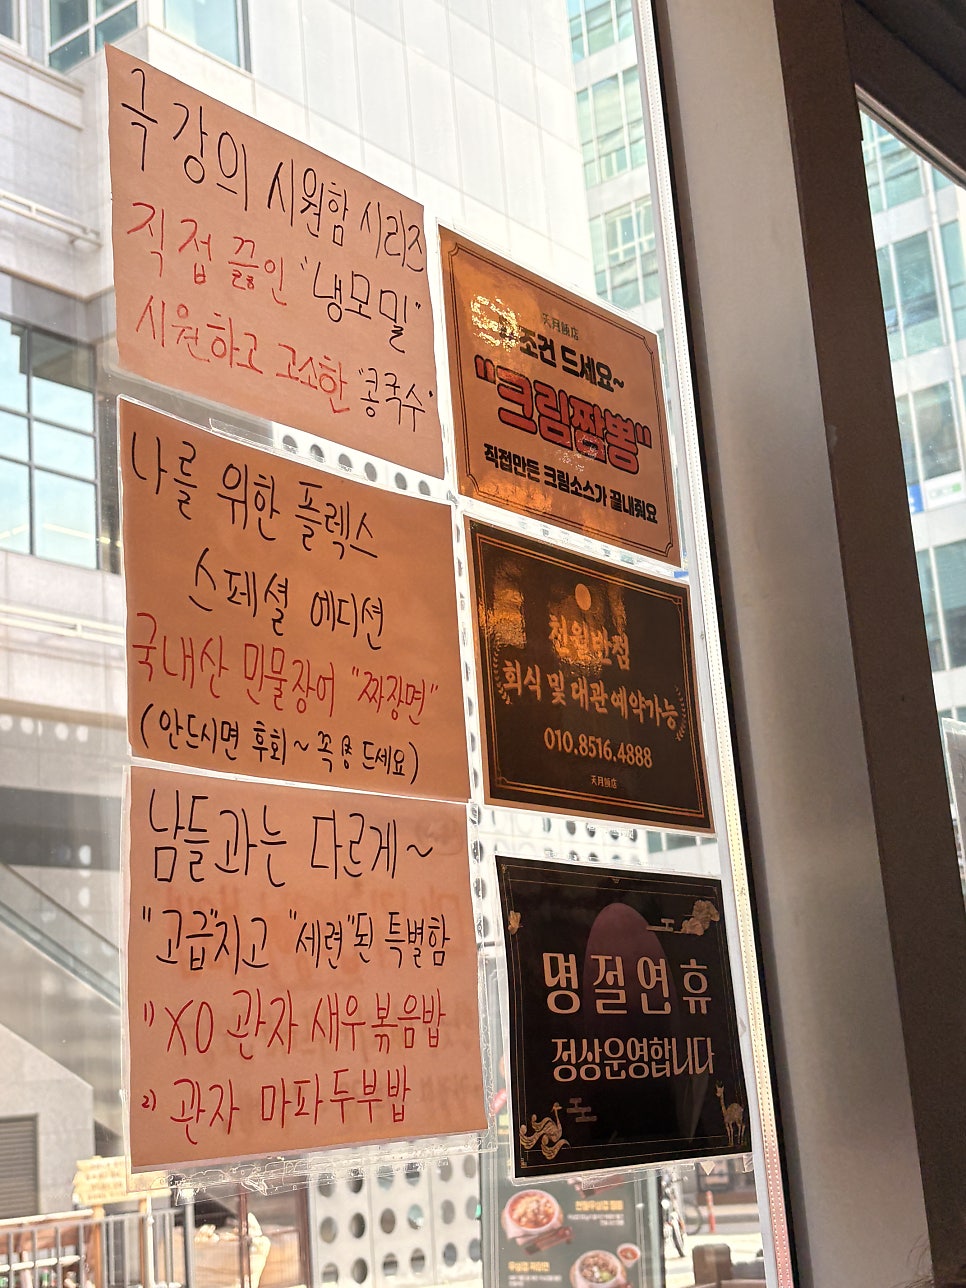 극강의 시원함 시리즈
직접 끓인 "냉모밀"
시원하고 고소한 "콩국수"
나를 위한 플렉스
스페셜 에디션
국내산 민물장어 "짜장면"
(안드시면 후회~ 꼭 용 드세요)
남들과는 다르게~
"고급"지고 "세련"된 특별함
1) XO 관자 새우볶음밥
2) 관자 마파두부밥
天月飯店
조건 드세요~
"크림짬뽕"
직접만든 크림소스가 끝내줘요
천월반점
회식 및 대관 예약가능
010.8516.4888
天月飯店
명절연휴
정상운영합니다